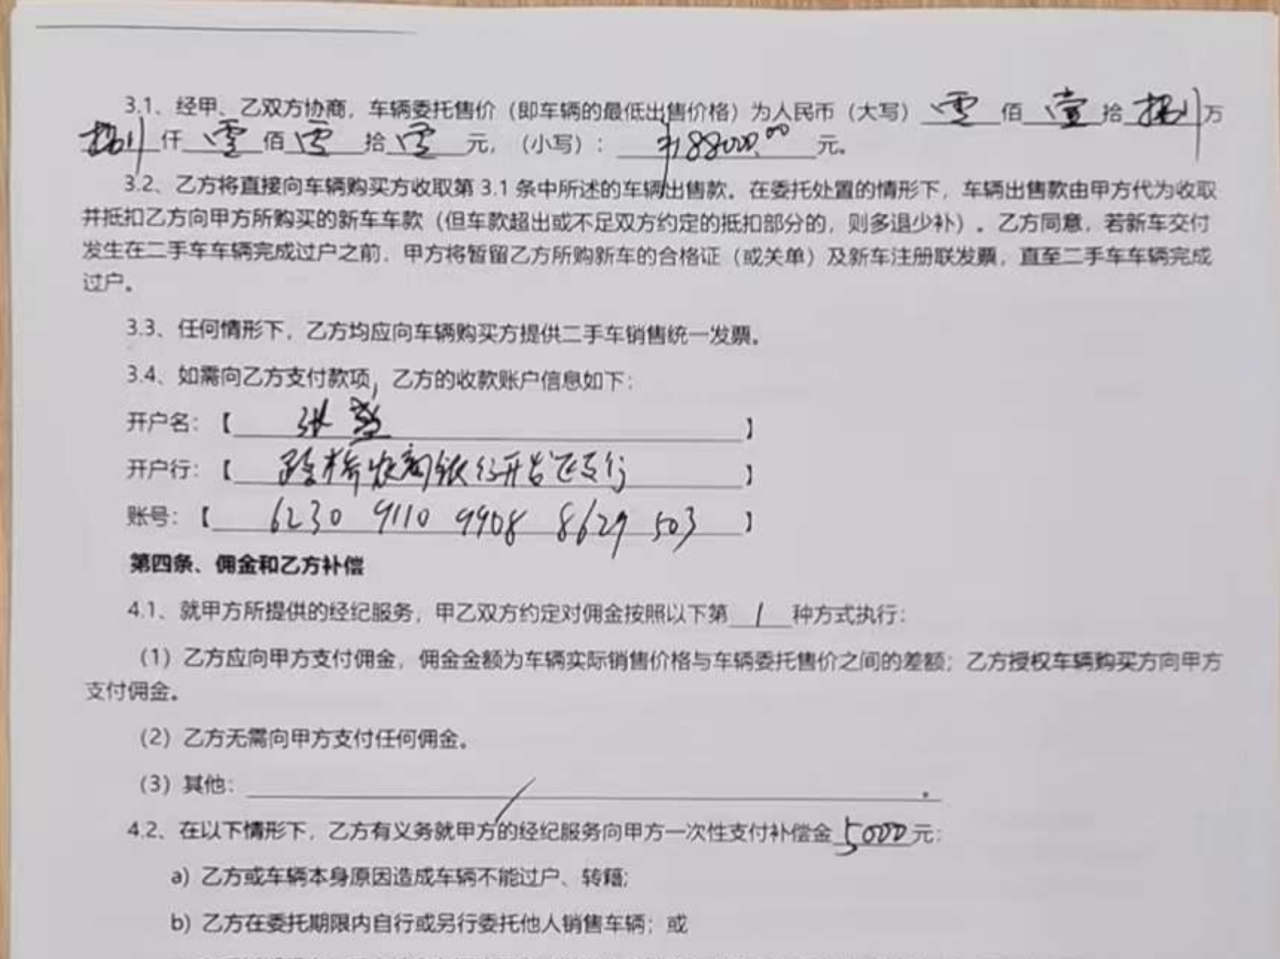 3.1、经甲、乙双方协商，车辆委托售价（即车辆的最低出售价格）为人民币（大写）零佰壹拾捌万
捌仟零佰零拾零元，（小写）：¥188000.00元。
3.2、乙方将直接向车辆购买方收取第 3.1 条中所述的车辆出售款。在委托处置的情形下，车辆出售款由甲方代为收取
并抵扣乙方向甲方所购买的新车车款（但车款超出或不足双方约定的抵扣部分的，则多退少补）。乙方同意，若新车交付
发生在二手车车辆完成过户之前，甲方将暂留乙方所购新车的合格证（或关单）及新车注册联发票，直至二手车车辆完成
过户。
3.3、任何情形下，乙方均应向车辆购买方提供二手车销售统一发票。
3.4、如需向乙方支付款项，乙方的收款账户信息如下：
开户名：【张】
开户行：【路桥农商银行开发区支行】
账号：【6230 9110 9908 8629 503】
第四条、佣金和乙方补偿
4.1、就甲方所提供的经纪服务，甲乙双方约定对佣金按照以下第 1 种方式执行：
（1）乙方应向甲方支付佣金，佣金金额为车辆实际销售价格与车辆委托售价之间的差额；乙方授权车辆购买方向甲方
支付佣金。
（2）乙方无需向甲方支付任何佣金。
（3）其他：/。
4.2、在以下情形下，乙方有义务就甲方的经纪服务向甲方一次性支付补偿金 5000 元：
a) 乙方或车辆本身原因造成车辆不能过户、转籍；
b) 乙方在委托期限内自行或另行委托他人销售车辆；或